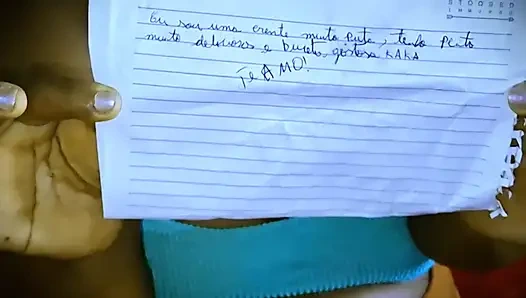 Eu sou uma crente muito puta, tenho peito
muito delicioso e buceta gostosa KAKA
Te AMO!